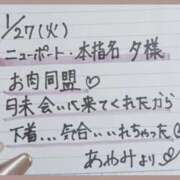 1/27(火)
ニューポート・本指名 夕様
お肉同盟♡
毎未会いに来てくれたから
下着…気合いいれちゃった♡
あやみより